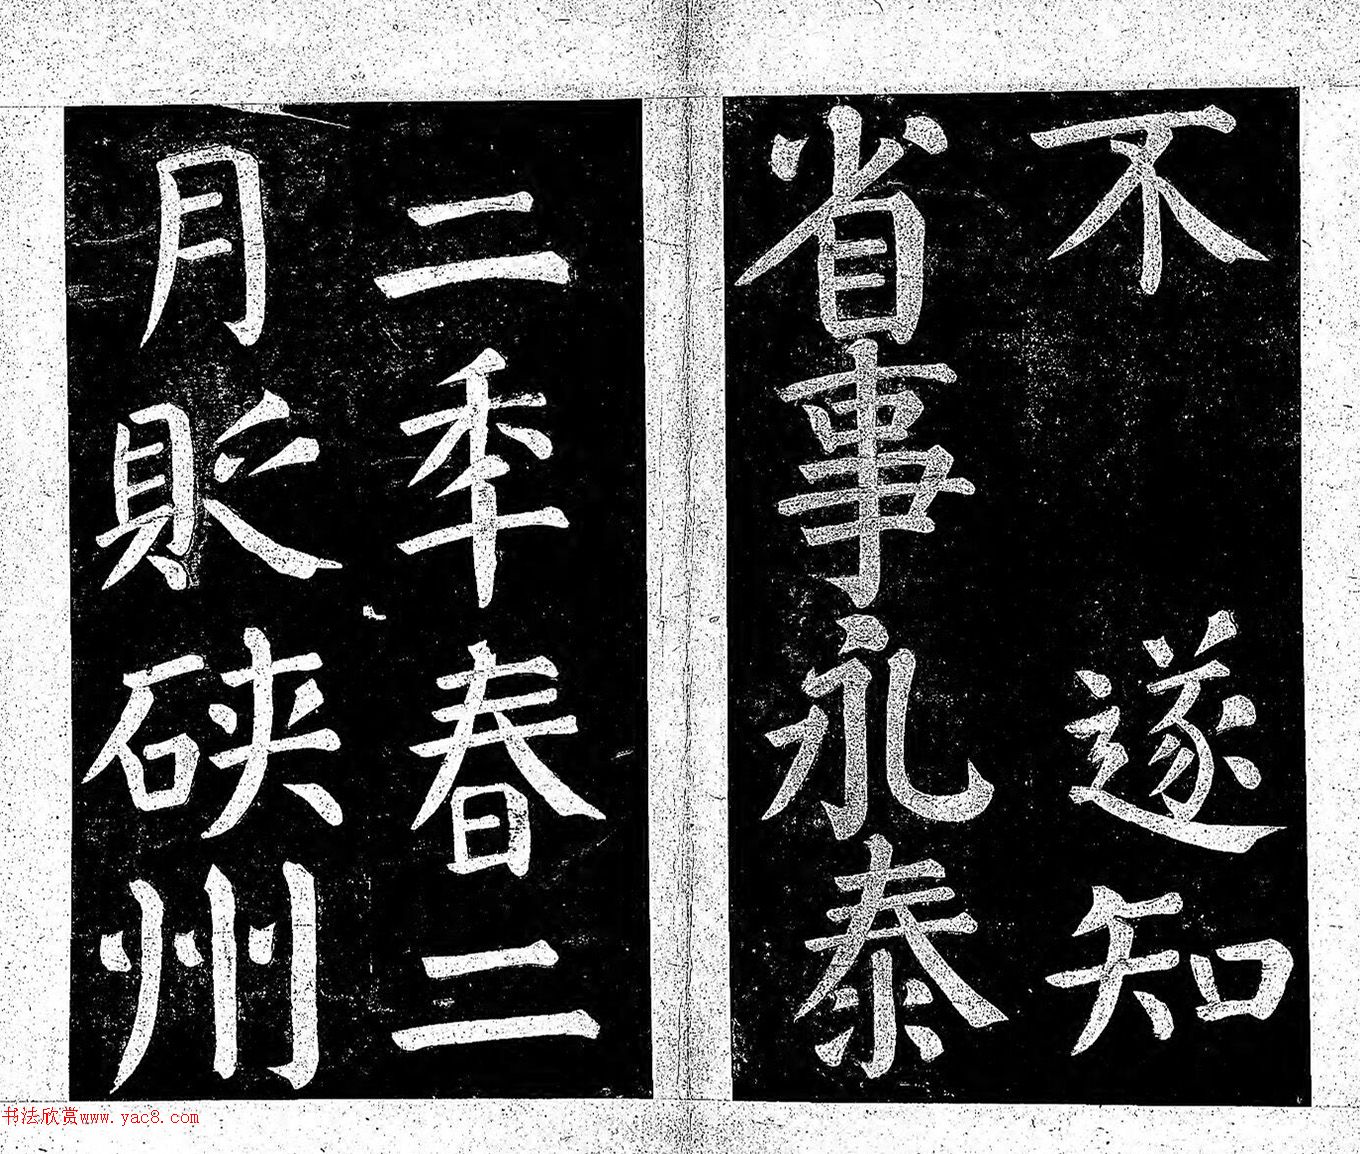 不　遂知
省事永泰
二年春二
月貶硤州
书法欣赏www.yac8.com